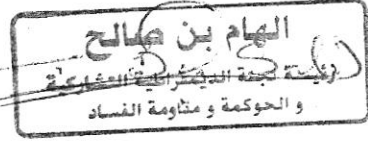 الهام بن صالح
رئيسة لجنة الديمقراطية التشاركية
و الحوكمة و مقاومة الفساد